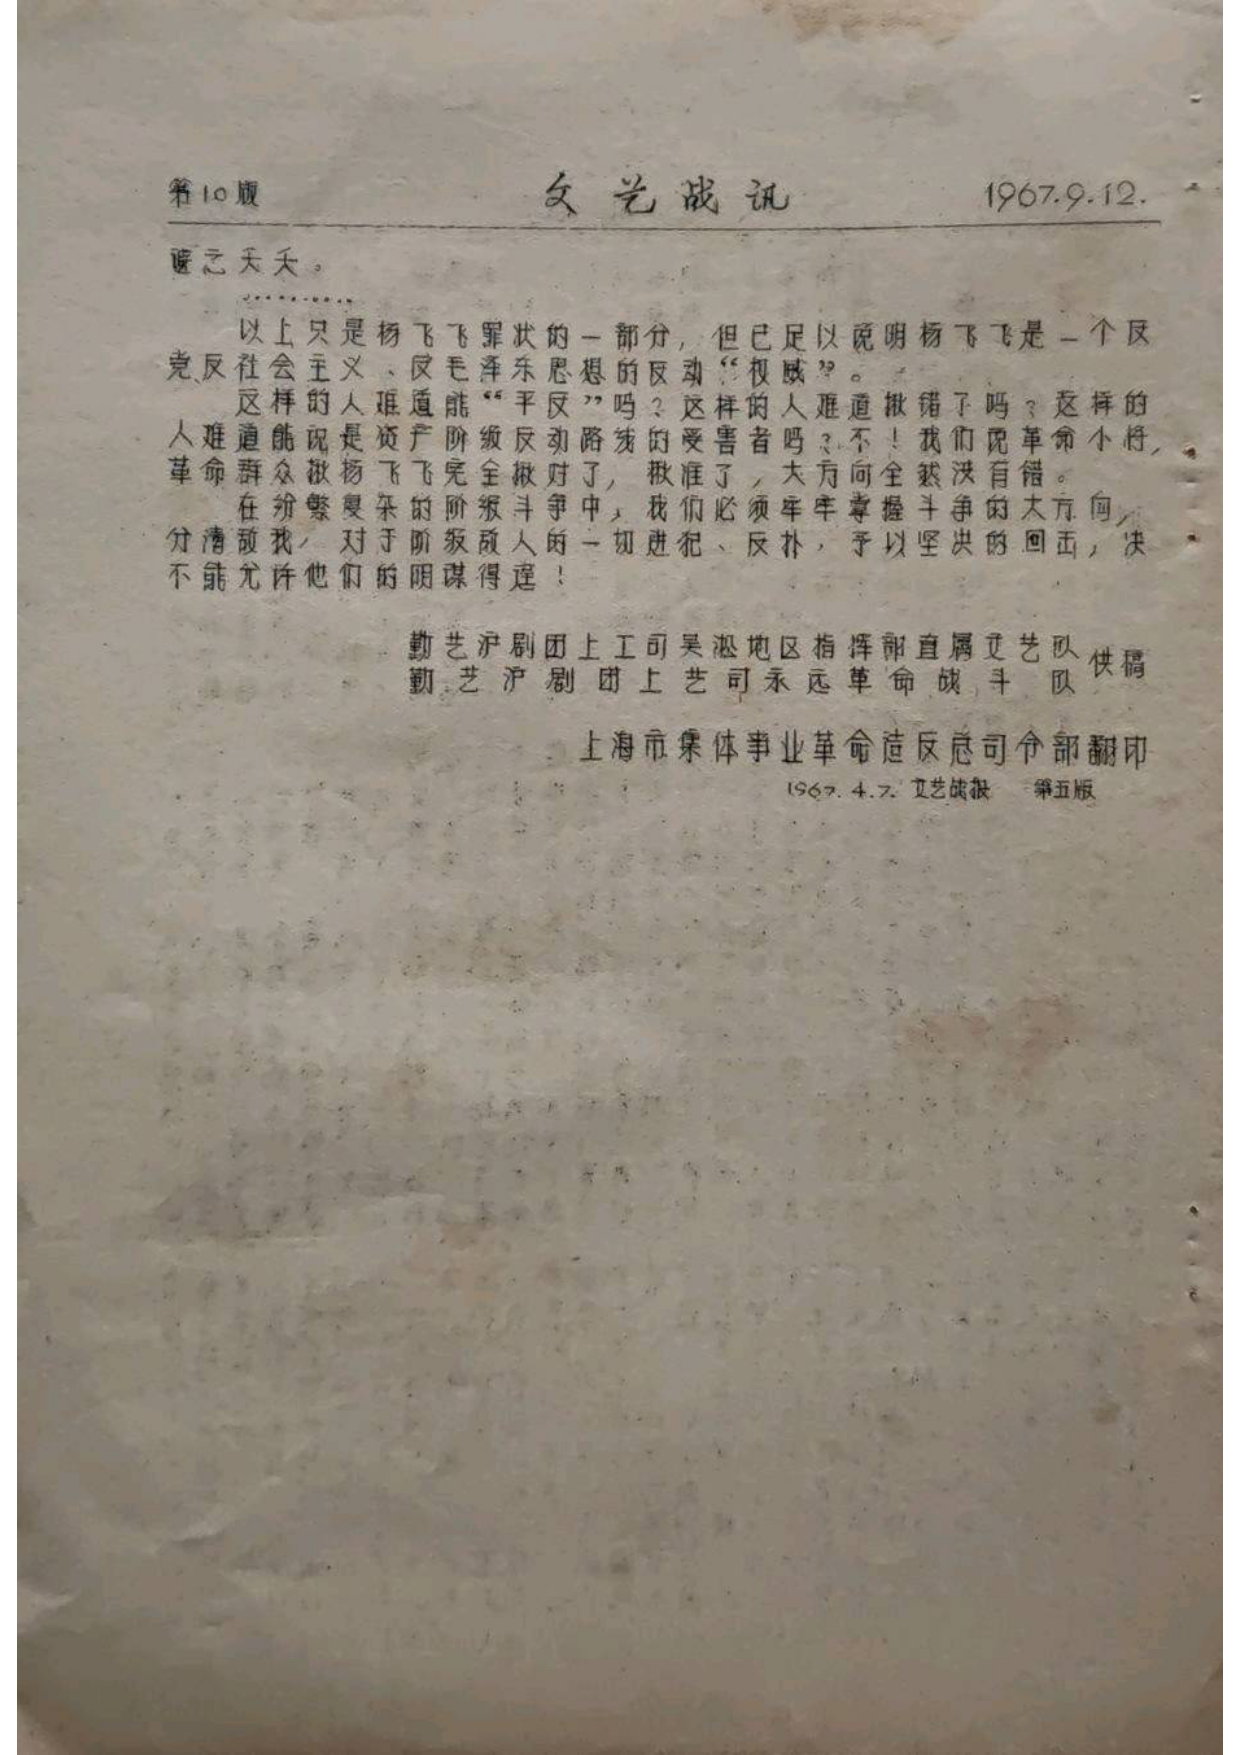 第10版 文艺战讯 1967.9.12.
之夭夭。
…………
以上只是杨飞飞罪状的一部分，但已足以说明杨飞飞是一个反
党反社会主义、反毛泽东思想的反动“权威”。
这样的人难道能“平反”吗？这样的人难道揪错了吗？这样的
人难道能说是资产阶级反动路线的受害者吗？不！我们说革命小将，
革命群众揪杨飞飞完全揪对了，揪准了，大方向全然没有错。
在纷繁复杂的阶级斗争中，我们必须牢牢掌握斗争的大方向，
分清敌我，对于阶级敌人的一切进犯、反扑，予以坚决的回击，决
不能允许他们的阴谋得逞！
勤艺沪剧团上工司吴淞地区指挥部直属文艺队
勤艺沪剧团上艺司永远革命战斗队
供稿
上海市集体事业革命造反总司令部翻印
1967.4.7.文艺战报 第五版